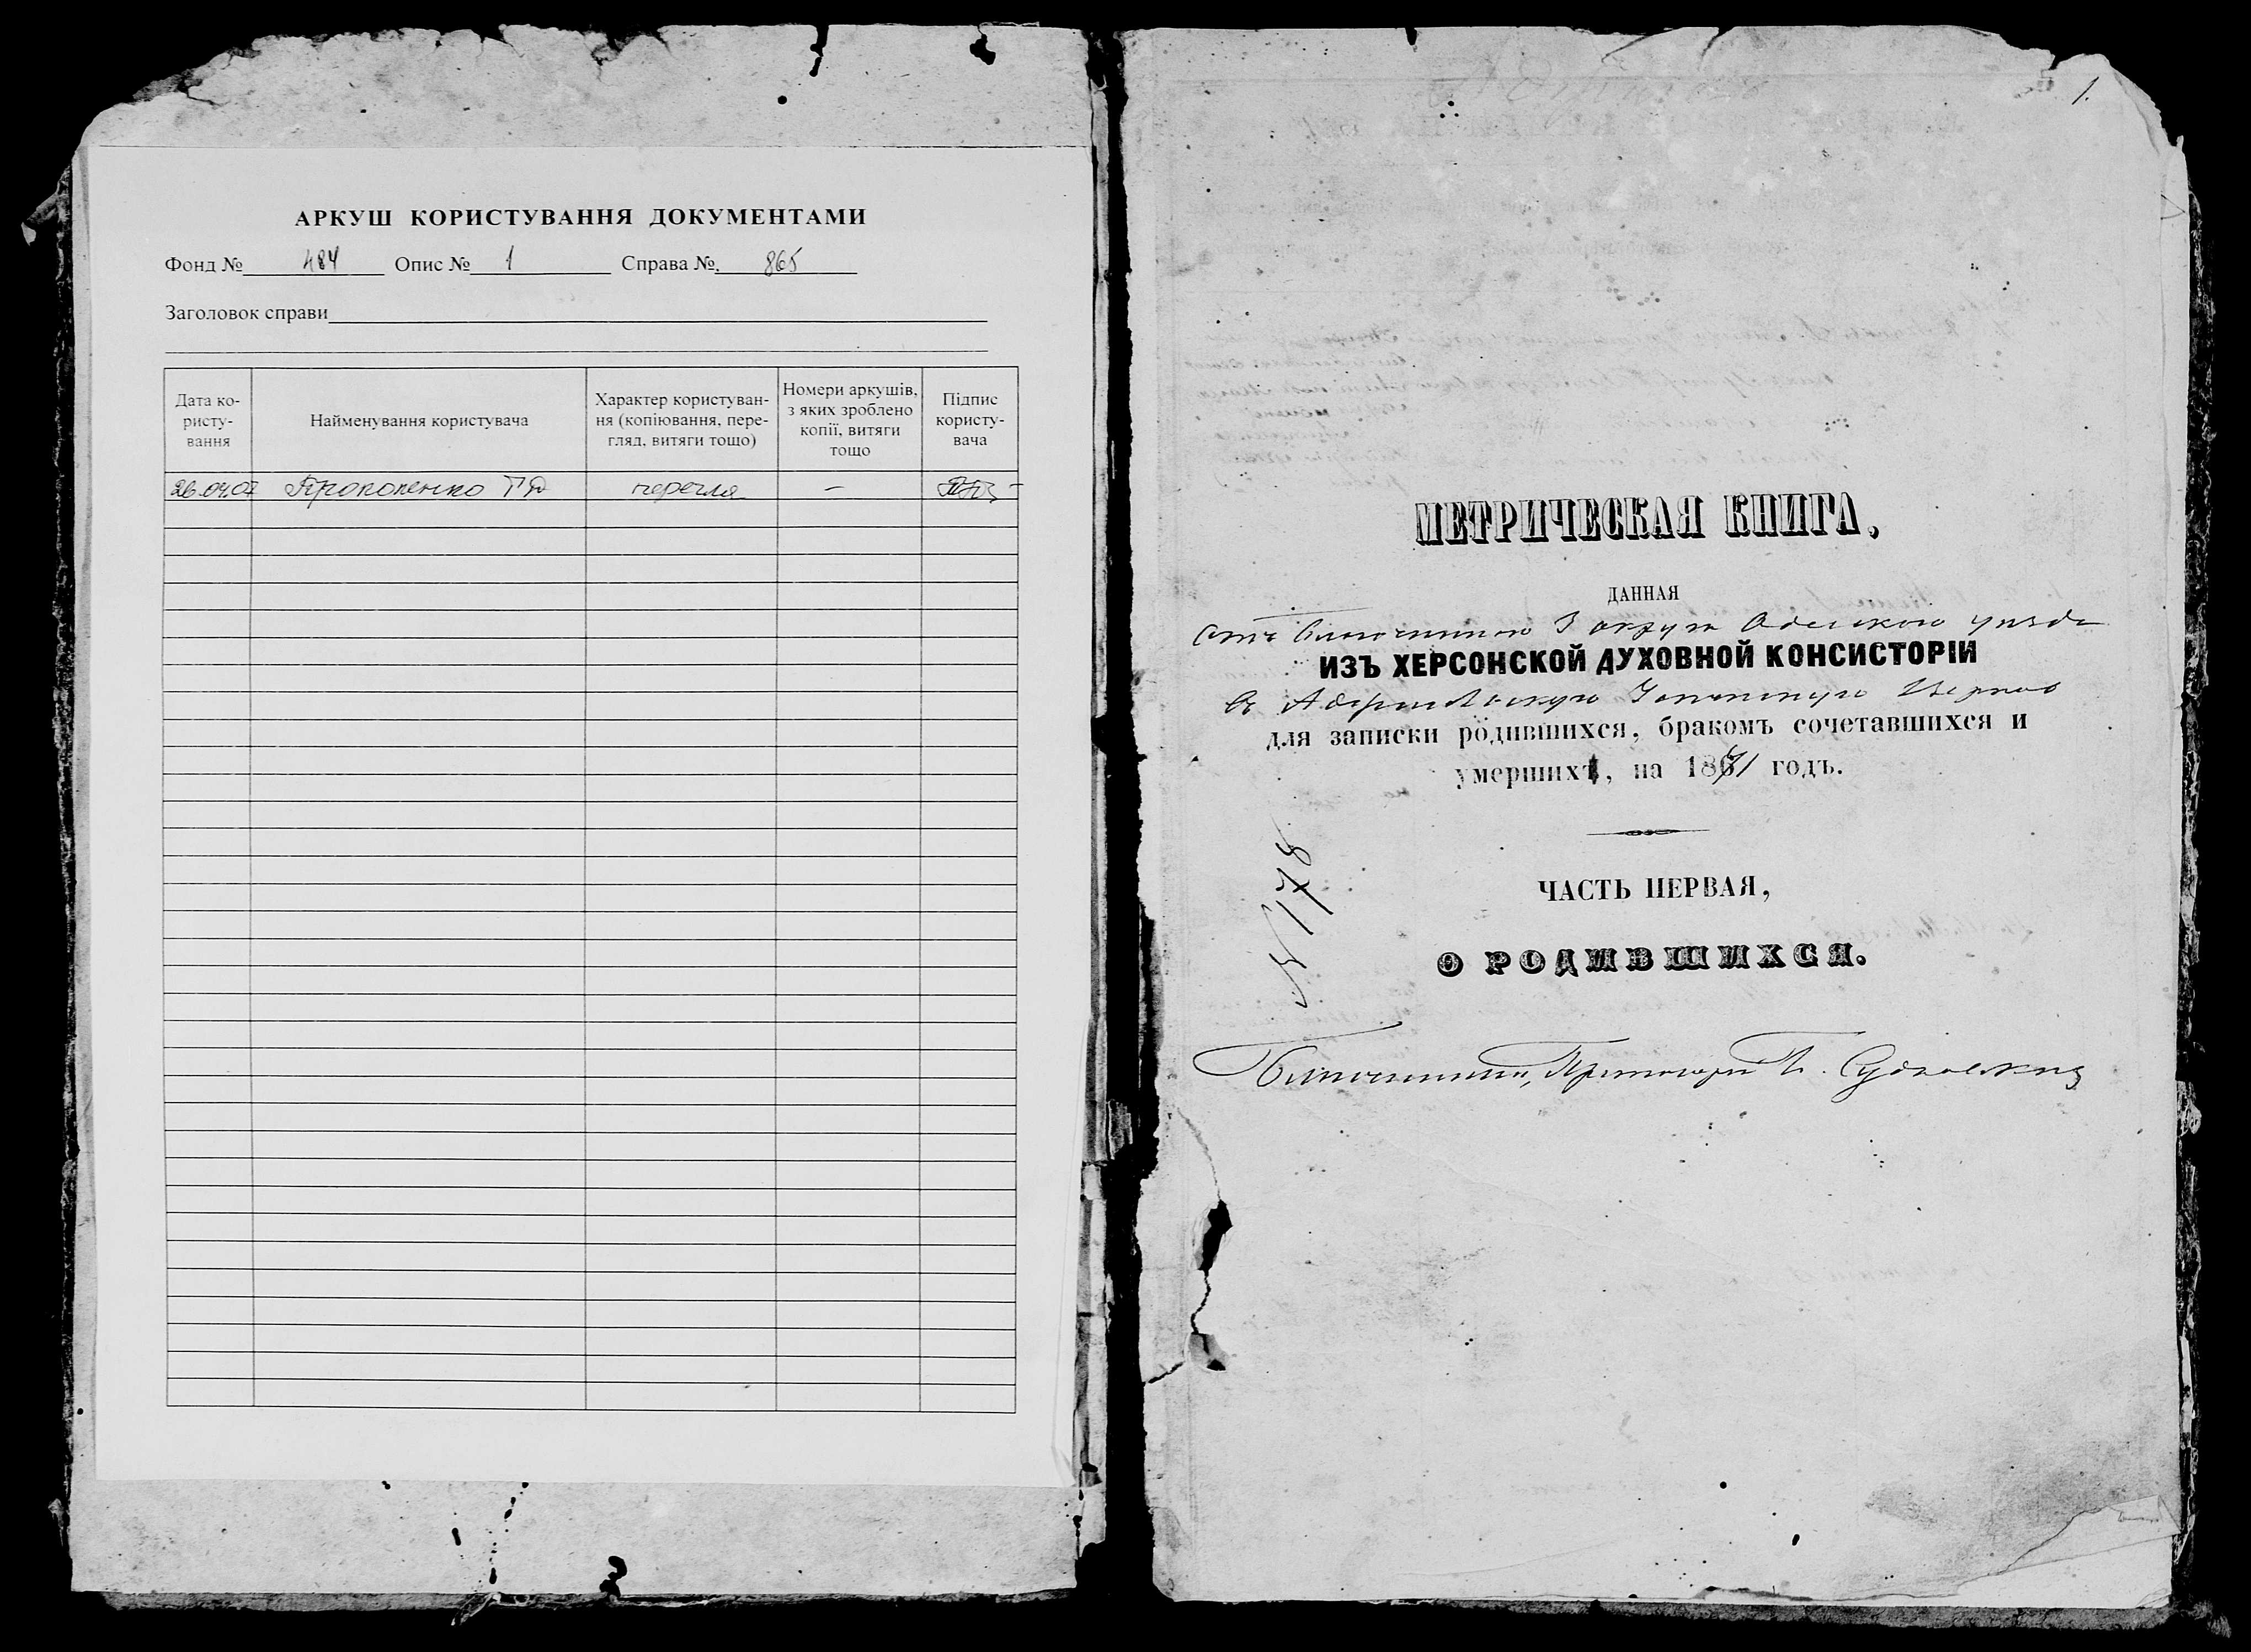 АРКУШ КОРИСТУВАННЯ ДОКУМЕНТАМИ
Фонд № 484 Опис № 1 Справа № 865
Заголовок справи
Дата ко-
ристу-
вання
Найменування користувача
Характер користуван-
ня (копіювання, пере-
гляд, витяги тощо)
Номери аркушів,
з яких зроблено
копії, витяги
тощо
Підпис
користу-
вача
26.04.07 Прокопенко перегля –
1.
МЕТРИЧЕСКАЯ КНИГА,
ДАННАЯ
отъ Благочиннаго 3 округа Одесскаго уезда
ИЗЪ ХЕРСОНСКОЙ ДУХОВНОЙ КОНСИСТОРІИ
въ Успенскую Церковь
для записки родившихся, бракомъ сочетавшихся и
умершихъ, на 1871 годъ.
№ 178
ЧАСТЬ ПЕРВАЯ,
О РОДИВШИХСЯ.
Благочинный, Протоиерей